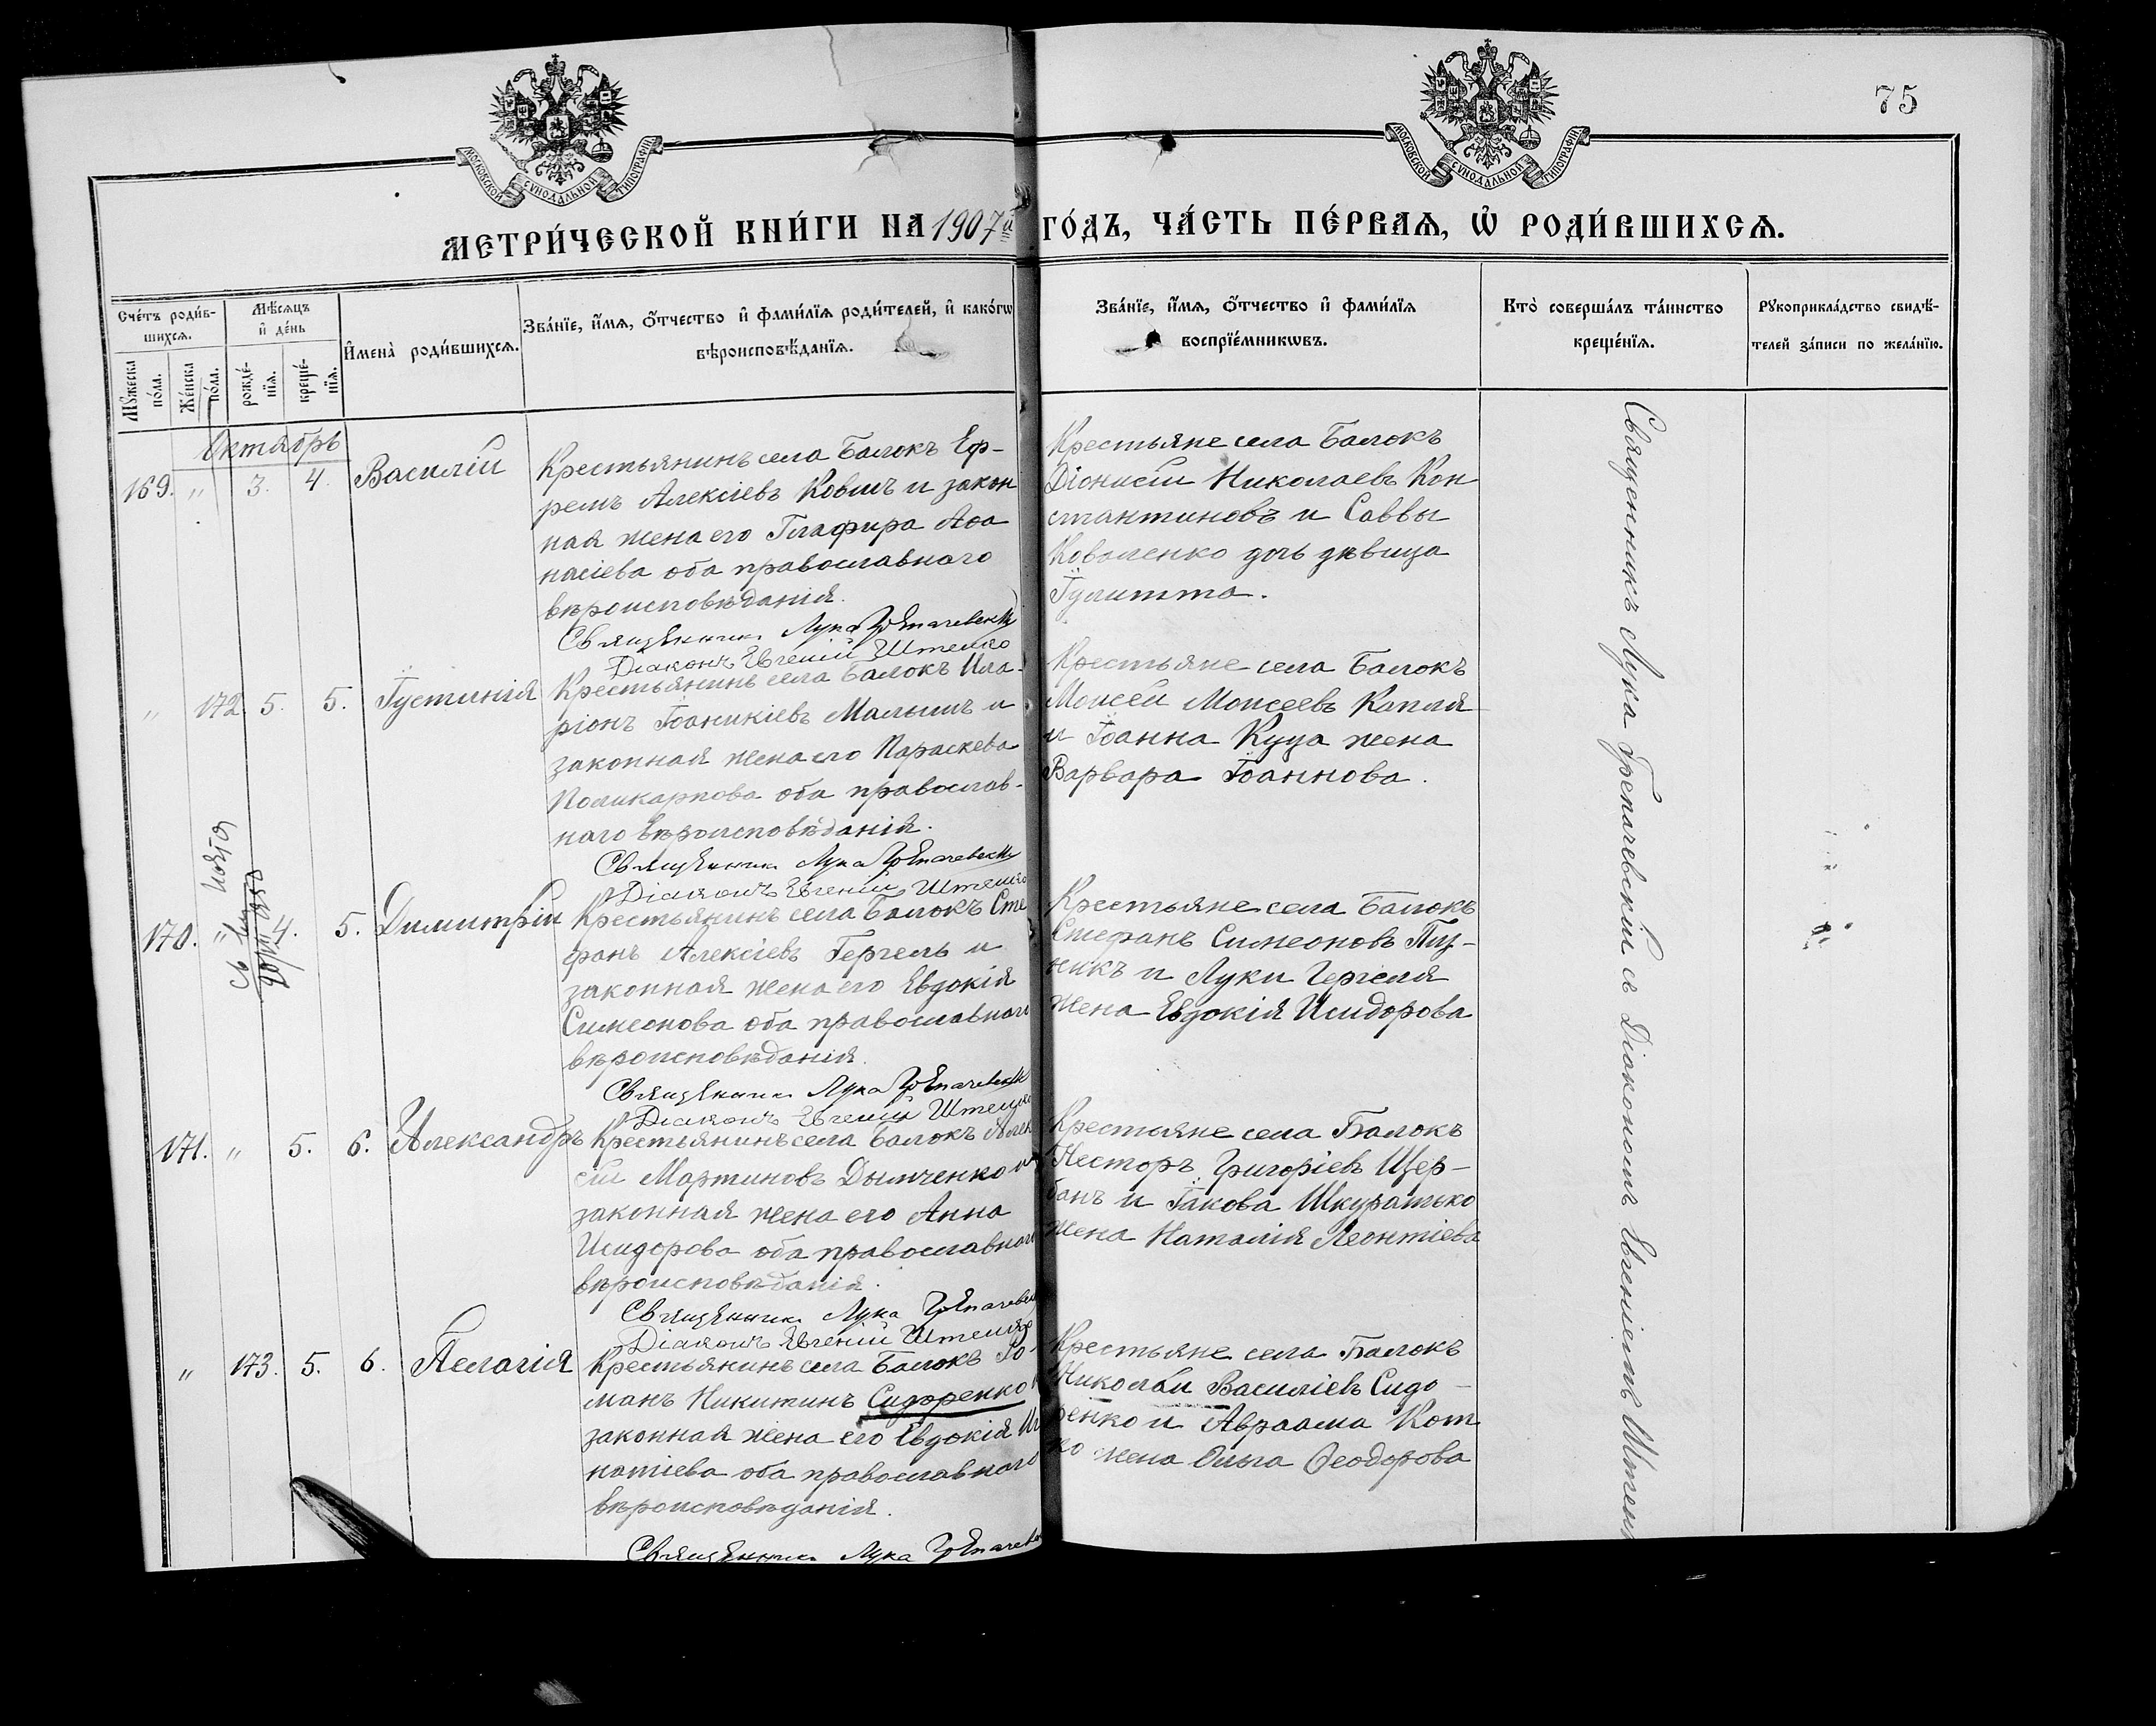 75
МОСКОВСКОЙ СѴНОДАЛЬНОЙ ТИПОГРАФІИ
МОСКОВСКОЙ СѴНОДАЛЬНОЙ ТИПОГРАФІИ
МЕТРИ́ЧЕСКОЙ КНИ́ГИ НА 1907й ГО́ДЪ, ЧА́СТЬ ПЕ́РВАЯ, Ѡ РОДИ́ВШИХСЯ.
Сче́тъ роди́в-
шихся.
Мѣ́сяцъ
и҆ де́нь
Мꙋ́жеска
по́ла.
Же́нска
по́ла.
рожде́-
нїя.
креще́-
нїя.
И҆мена̀ роди́вшихся.
Зва́нїе, и҆́мя, о҆́тчество и҆ фами́лїя роди́телей, и҆ како́гѡ
вѣроисповѣ́данїя.
Зва́нїе, и҆́мя, о҆́тчество и҆ фами́лїя
воспрїе́мникѡвъ.
Кто̀ соверша́лъ та́инство
креще́нїя.
Рꙋкоприкла́дство свидѣ́-
телей за́писи по жела́нїю.
Октябрь
169. " 3. 4. Василій
Крестьянинъ села Балокъ Еф-
ремъ Алексіевъ Ковшъ и закон
ная жена его Глафира Аѳа
насіева оба православнаго
вѣроисповѣданія.
Священникъ Лука Грепачевскій
Діаконъ Евгеній Штепко
Крестьяне села Балокъ
Діонисій Николаевъ Кон
стантиновъ и Саввы
Коваленко дочь дѣвица
Іулитта.
" 172. 5. 5. Іустинія
Крестьянинъ села Балокъ Ила-
ріонъ Іоаникіевъ Малышъ и
законная жена его Параскева
Поликарпова оба православ-
наго вѣроисповѣданія.
Священникъ Лука Грепачевскій
Діаконъ Евгеній Штепко
Крестьяне села Балокъ
Моисей Моисеевъ Капля
и Іоанна Куца жена
Варвара Іоаннова.
170. " 4. 5. Димитрій
Крестьянинъ села Балокъ Сте
фанъ Алексіевъ Гергель и
законная жена его Евдокія
Симеонова оба православнаго
вѣроисповѣданія.
Священникъ Лука Грепачевскій
Діаконъ Евгеній Штепко
Крестьяне села Балокъ
Стефанъ Симеоновъ
и Луки Гергеля
жена Евдокія Исидорова
171. " 5. 6. Александръ
Крестьянинъ села Балокъ Алек
сій Мартиновъ Дымченко и
законная жена его Анна
Исидорова оба православнаго
вѣроисповѣданія.
Священникъ Лука Грепачевск
Діаконъ Евгеній Штепко
Крестьяне села Балокъ
Несторъ Григоріевъ Щер-
банъ и Іакова Шкуратько
жена Наталія Леонтіева
" 173. 5. 6. Пелагія
Крестьянинъ села Балокъ Ро-
манъ Никитинъ Сидоренко и
законная жена его Евдокія Иг
натіева оба православнаго
вѣроисповѣданія.
Священникъ Лука Грепачев
Крестьяне села Балокъ
Николай Василіевъ Сидо-
ренко и Авраама Кот
ко жена Ольга Ѳеодорова
Священникъ Лука Грепачевскій съ Діакономъ Евгеніемъ Штепк